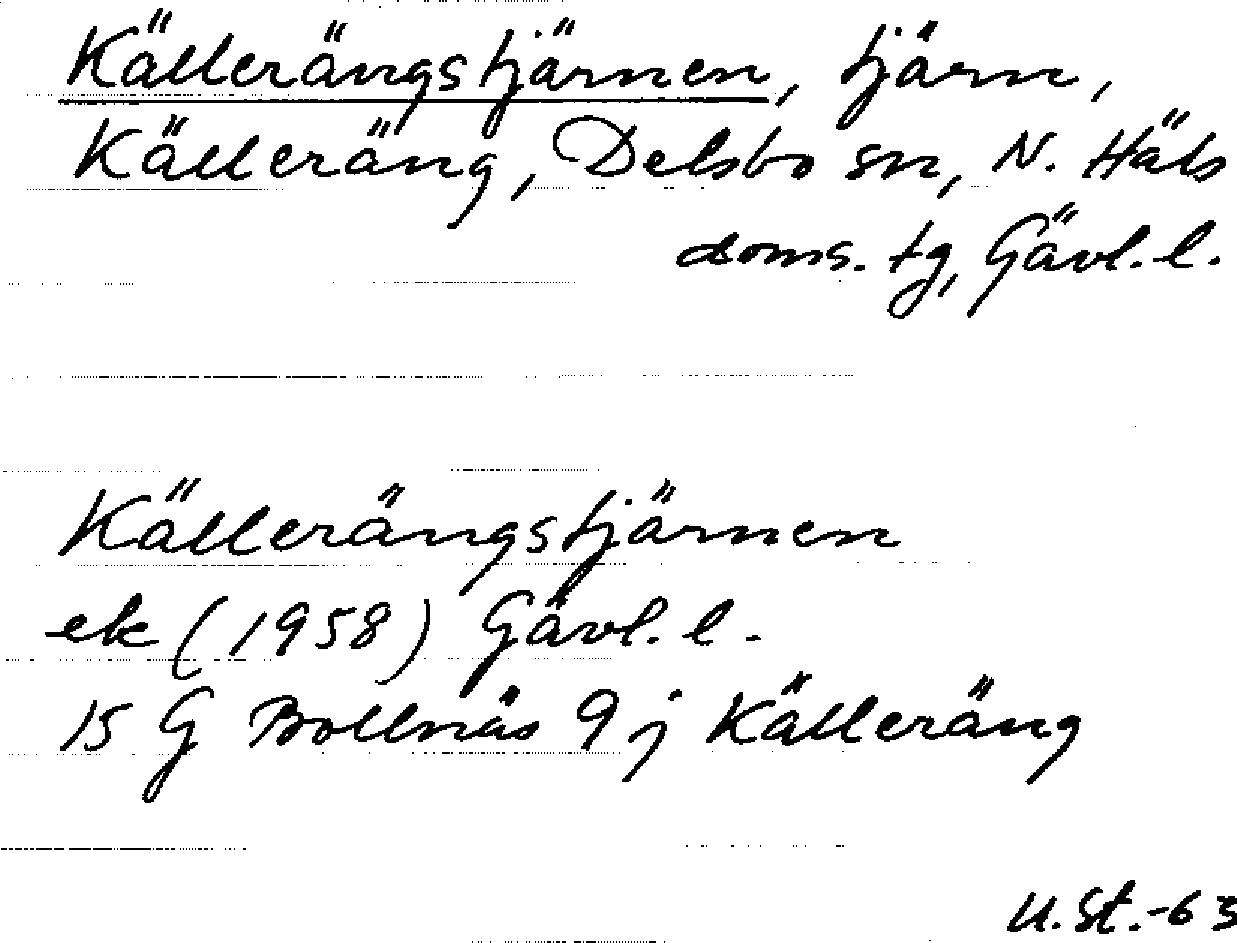 Källerängstjärnen, tjärn,
Källeräng, Delsbo sn, N. Häls
doms. tg, Gävl. l.
Källerängstjärnen
ek (1958) Gävl. l.
15 G Bollnäs 9 j Källeräng
U. St. -63